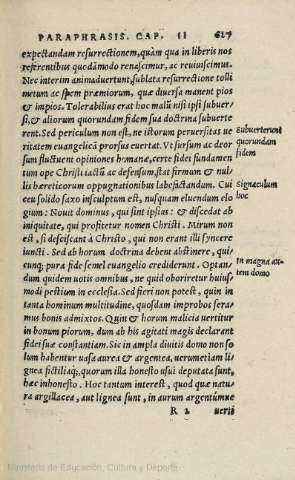 PARAPHRASIS. CAP. II 627
expectandam resurrectionem, quàm qua in liberis nos
referentibus quodāmodo renascimur, ac reuiuiscimus.
Nec interim animaduertunt, sublata resurrectione tolli
metum ac spem præmiorum, quæ diuersa manent pios
& impios. Tolerabilius erat hoc malū nisi ipsi subuer
si, & aliorum quorundam fidem sua doctrina subuerte
rent. Sed periculum non est, ne istorum peruersitas ue
ritatem euangelicā prorsus euertat. Vt sursum ac deor
sum fluctuent opiniones humanæ, certe fidei fundamen
tum ope Christi iactū ac defensum, stat firmum & nul-
lis hæreticorum oppugnationibus labefactandum. Cui
ceu solido saxo insculptum est, nusquam eluendum elo
gium: Nouit dominus, qui sint ipsius: & discedat ab
iniquitate, qui profitetur nomen Christi. Mirum non
est, si desciscant à Christo, qui non erant illi syncere
iuncti. Sed ab horum doctrina debent abstinere, qui-
cunq; pura fide semel euangelio crediderunt. Optan-
dum quidem uotis omnibus, ne quid oboriretur huius-
modi pestium in ecclesia. Sed fieri non potest, quin in
tanta hominum multitudine, quosdam improbos fera-
mus bonis admixtos. Quin & horum malicia uertitur
in bonum piorum, dum ab his agitati magis declarant
fidei suæ constantiam. Sic in ampla diuitis domo non so
lum habentur uasa aurea & argentea, uerumetiam li-
gnea fictiliaq;, quorum illa honesto usui deputata sunt,
hæc inhonesto. Hoc tantum interest, quod quæ natu-
ra argillacea, aut lignea sunt, in aurum argentúmue
R 2 ueris
Subuerterunt
quorundam
fidem
Signaculum
hoc
In magna au-
tem domo
Ministerio de Educación, Cultura y Deporte